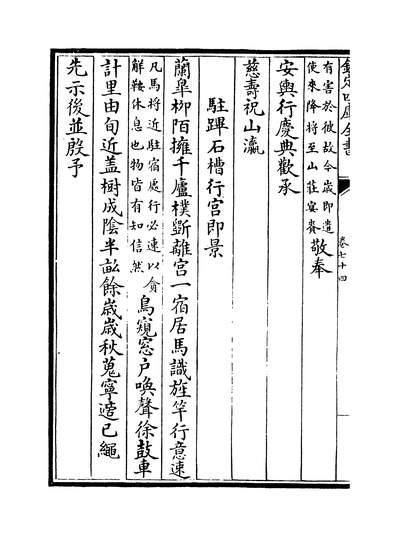 欽定四庫全書
卷七十四
有害於彼故今歲即遣
使來降將至山莊宴賚
敬奉
安輿行慶典歡承
慈壽祝山瀛
駐蹕石槽行宮即景
蘭臯柳陌擁千廬樸斵離宮一宿居馬識旌竿行意速
凡馬將近駐宿處行必速以貪
解鞍休息也物皆有知信然
鳥窺窓户喚聲徐鼓車
計里由旬近盖樹成陰半畝餘歲歲秋蒐寧已繩
先示後並予